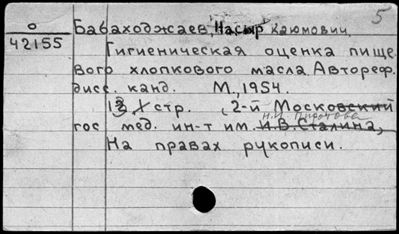 5
о Бабаходжаев, Насыр Каюмович
42155 Гигиеническая оценка пище-
вого хлопкового масла. Автореф.
дисс. канд. М., 1954.
стр. (2-й Московский
Н.И. Пирогова
гос мед. ин-т им. И.В. Сталина),
На правах рукописи.